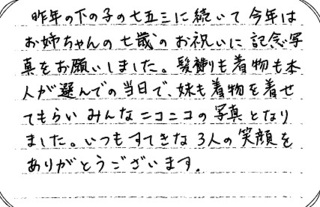 昨年の下の子の七五三に続いて今年は
お姉ちゃんの七歳のお祝いに記念写
真をお願いしました。髪飾りも着物も本
人が選んでの当日で、妹も着物を着せ
てもらいみんなニコニコの写真となり
ました。いつもすてきな3人の笑顔を
ありがとうございます。